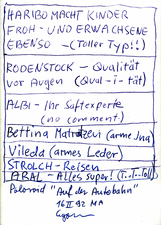 HARIBO MACHT KINDER
FROH - UND ERWACHSENE
EBENSO - (Toller Typ!!)
RODENSTOCK - Qualität
vor Augen (Qual-i-tät)
ALBI - Ihr Saftexperte
(no comment)
Bettina Matratzen (arme Ina)
Vileda (armes Leder)
STROLCH - Reisen
ARAL - Alles super!
Polonoid "Auf der Autobahn"
16 II 92 MA